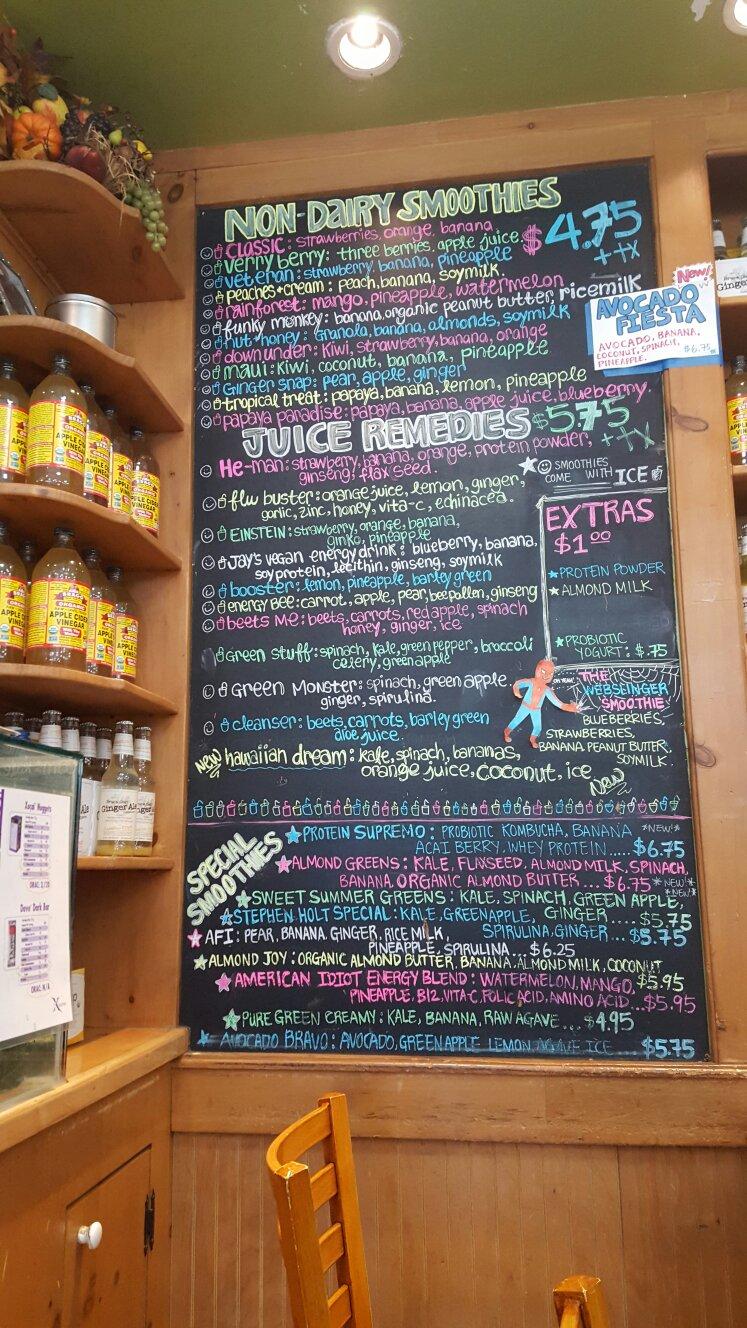 NON-DAIRY SMOOTHIES
$4.75
+TX
CLASSIC: strawberries, orange, banana
verry berry: three berries, apple juice
veteran: strawberry, banana, pineapple
peaches+cream: peach, banana, soymilk
rainforest: mango, pineapple, watermelon
funky monkey: banana, organic peanut butter, ricemilk
nut honey: Granola, banana, almonds, soymilk
down under: kiwi, strawberry, banana, orange
maui: kiwi, coconut, banana, pineapple
Ginger snap: pear, apple, ginger
tropical treat: papaya, banana, lemon, pineapple
papaya paradise: papaya, banana, apple juice, blueberry
New!
AVOCADO
FIESTA
AVOCADO, BANANA,
COCONUT, SPINACH,
PINEAPPLE.
$6.75
JUICE REMEDIES $5.75
+TX
He-man: strawberry, banana, orange, protein powder,
ginseng, flax seed.
flu buster: orange juice, lemon, ginger,
garlic, zinc, honey, vita-c, echinacea.
EINSTEIN: strawberry, orange, banana,
ginko, pineapple
Jay's vegan energy drink: blueberry, banana,
soy protein, lecithin, ginseng, soymilk
booster: lemon, pineapple, barley green
energy Bee: carrot, apple, pear, bee pollen, ginseng
beets me: beets, carrots, red apple, spinach
honey, ginger, ice
Green Stuff: spinach, kale, green pepper, broccoli
celery, green apple
Green Monster: spinach, green apple
ginger, spirulina.
cleanser: beets, carrots, barley green
aloe juice.
NEW hawaiian dream: kale, spinach, bananas,
orange juice, coconut, ice
New
SMOOTHIES
COME WITH ICE
EXTRAS
$1.00
PROTEIN POWDER
ALMOND MILK
PROBIOTIC
YOGURT: $.75
OH YEAH!
THE
WEBSLINGER
SMOOTHIE
BLUEBERRIES,
STRAWBERRIES,
BANANA, PEANUT BUTTER,
SOYMILK.
SPECIAL
SMOOTHIES
PROTEIN SUPREMO: PROBIOTIC KOMBUCHA, BANANA *NEW!*
ACAI BERRY, WHEY PROTEIN..... $6.75
ALMOND GREENS: KALE, FLAXSEED, ALMOND MILK, SPINACH,
BANANA, ORGANIC ALMOND BUTTER... $6.75 *NEW!*
*NEW!*
SWEET SUMMER GREENS: KALE, SPINACH, GREEN APPLE,
GINGER.... $5.75
STEPHEN HOLT SPECIAL: KALE, GREENAPPLE,
SPIRULINA, GINGER... $5.75
AFI: PEAR, BANANA, GINGER, RICE MILK,
PINEAPPLE, SPIRULINA... $6.25
ALMOND JOY: ORGANIC ALMOND BUTTER, BANANA, ALMOND MILK, COCONUT
$5.95
AMERICAN IDIOT ENERGY BLEND: WATERMELON, MANGO,
PINEAPPLE, B12, VITA-C, FOLIC ACID, AMINO ACID...$5.95
PURE GREEN CREAMY: KALE, BANANA, RAW AGAVE... $4.95
AVOCADO BRAVO: AVOCADO, GREENAPPLE, LEMON, AGAVE, ICE $5.75
BRAGG
ORGANIC
APPLE CIDER
VINEGAR
Ginger Ale
Xocai Nuggets
Dark Bar
ORAC: N/A